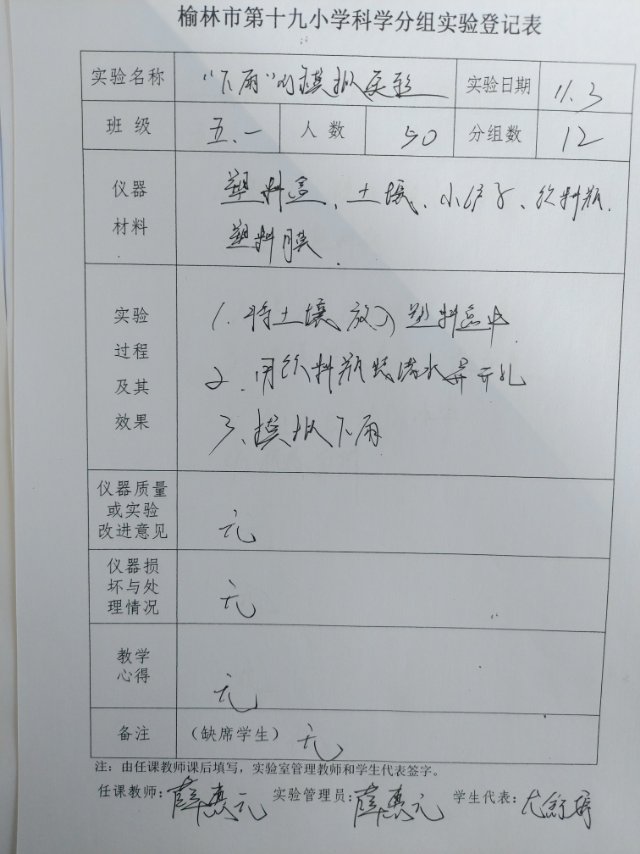 榆林市第十九小学科学分组实验登记表
实验名称 "下雨"的模拟实验 实验日期 11.3
班级 五.一 人数 50 分组数 12
仪器 塑料盒、土壤、小铲子、饮料瓶.
材料 塑料膜.
实验 1.将土壤放入塑料盒中
过程 2.用饮料瓶 水 开孔
及其
效果 3、模拟下雨
仪器质量
或实验
改进意见 无
仪器损
坏与处
理情况 无
教学
心得 无
备注 (缺席学生) 无
注:由任课教师课后填写,实验室管理教师和学生代表签字。
任课教师:薛惠元 实验管理员:薛惠元 学生代表: